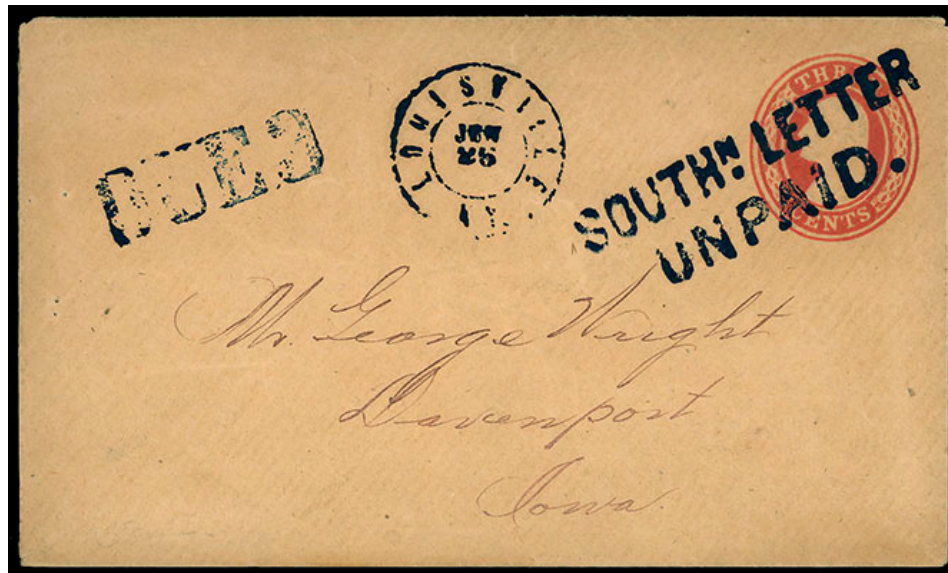 DUE 3
LOUISVILLE KY.
JUN
25
SOUTHN. LETTER
UNPAID.
THREE
CENTS
Mr. George Wright
Davenport
Iowa.